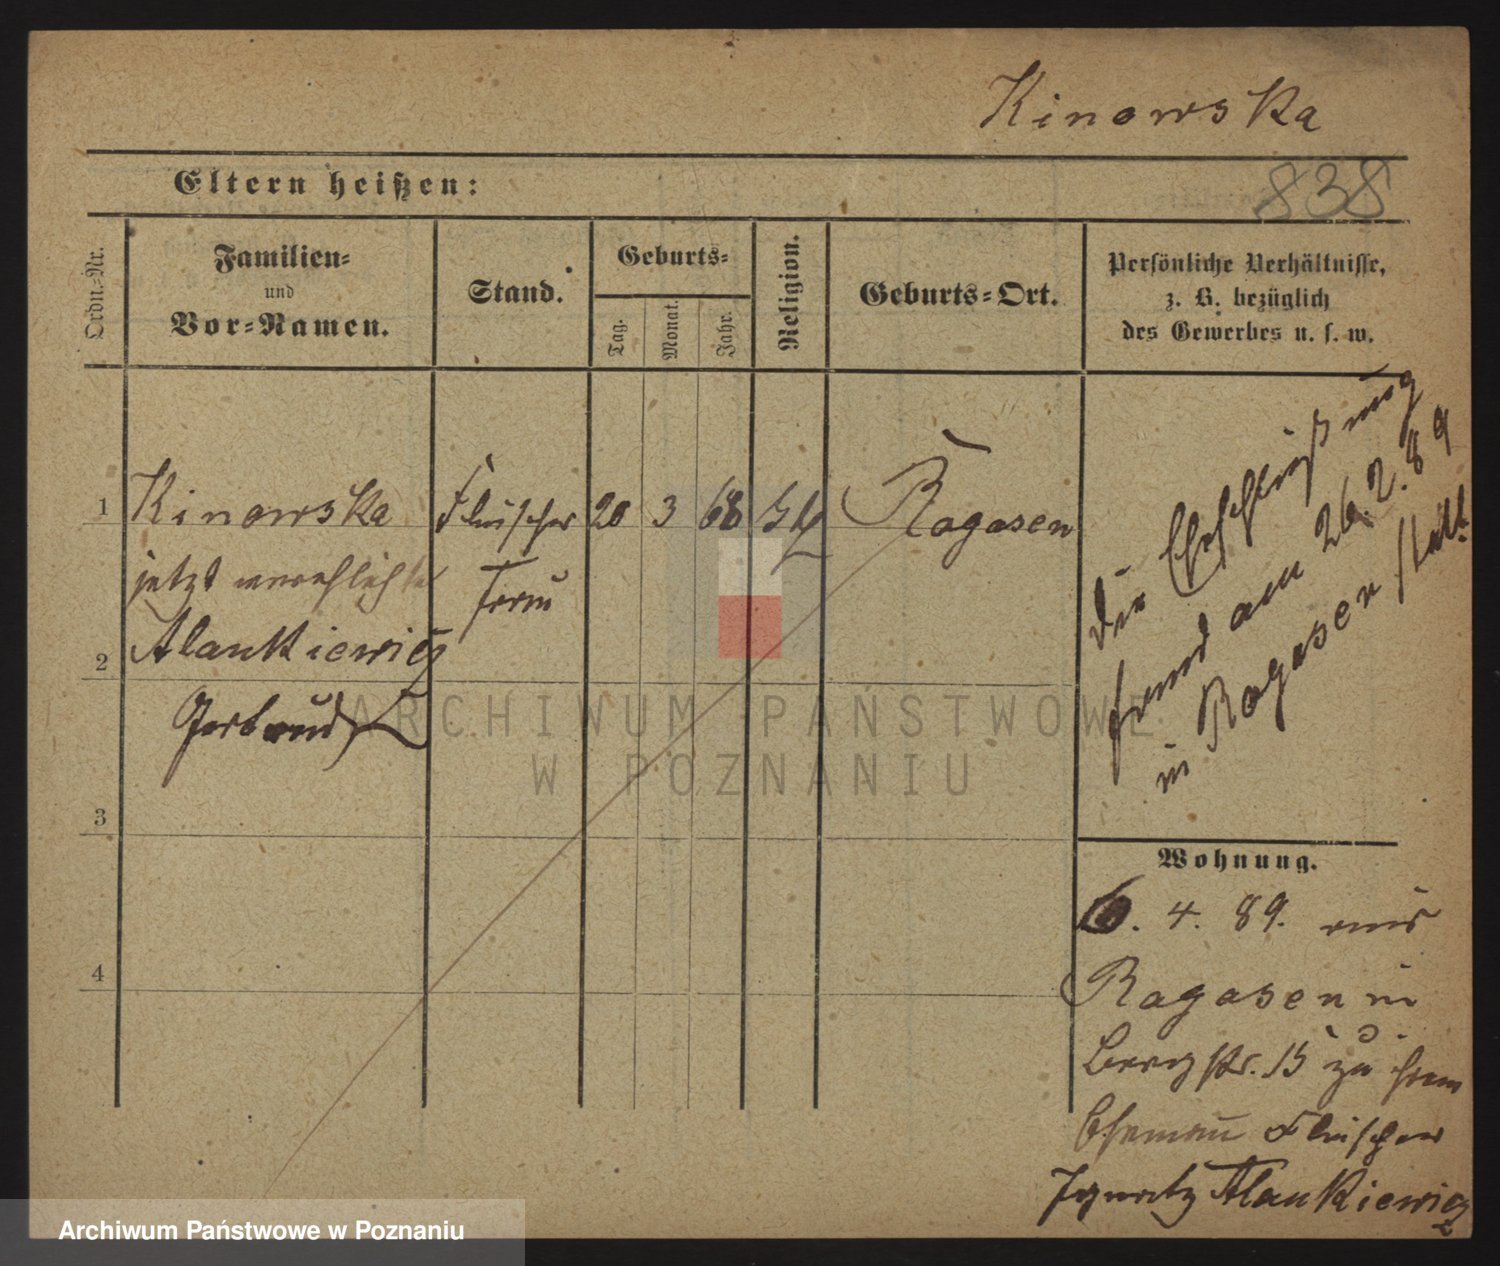 Kinowska
838
Eltern heißen:
Ordn.-Nr.
Familien-
und
Vor-Namen.
Stand.
Geburts-
Tag.
Monat.
Jahr.
Religion.
Geburts-Ort.
Persönliche Verhältnisse,
z. B. bezüglich
des Gewerbes u. s. w.
1 Kinowska Fleischer 20 3 68 Rogasen
jetzt verehlichte frau
2 Alankiewicz
Gertrud
3
4
die Eheschließung
fand am 26.2.89
in Rogasen statt.
Wohnung.
6. 4. 89. aus
Rogasen in
Bergstr. 15 zu ihrem
Ehemann Fleischer
Ignatz Alankiewicz
ARCHIWUM PAŃSTWOWE
W POZNANIU
Archiwum Państwowe w Poznaniu